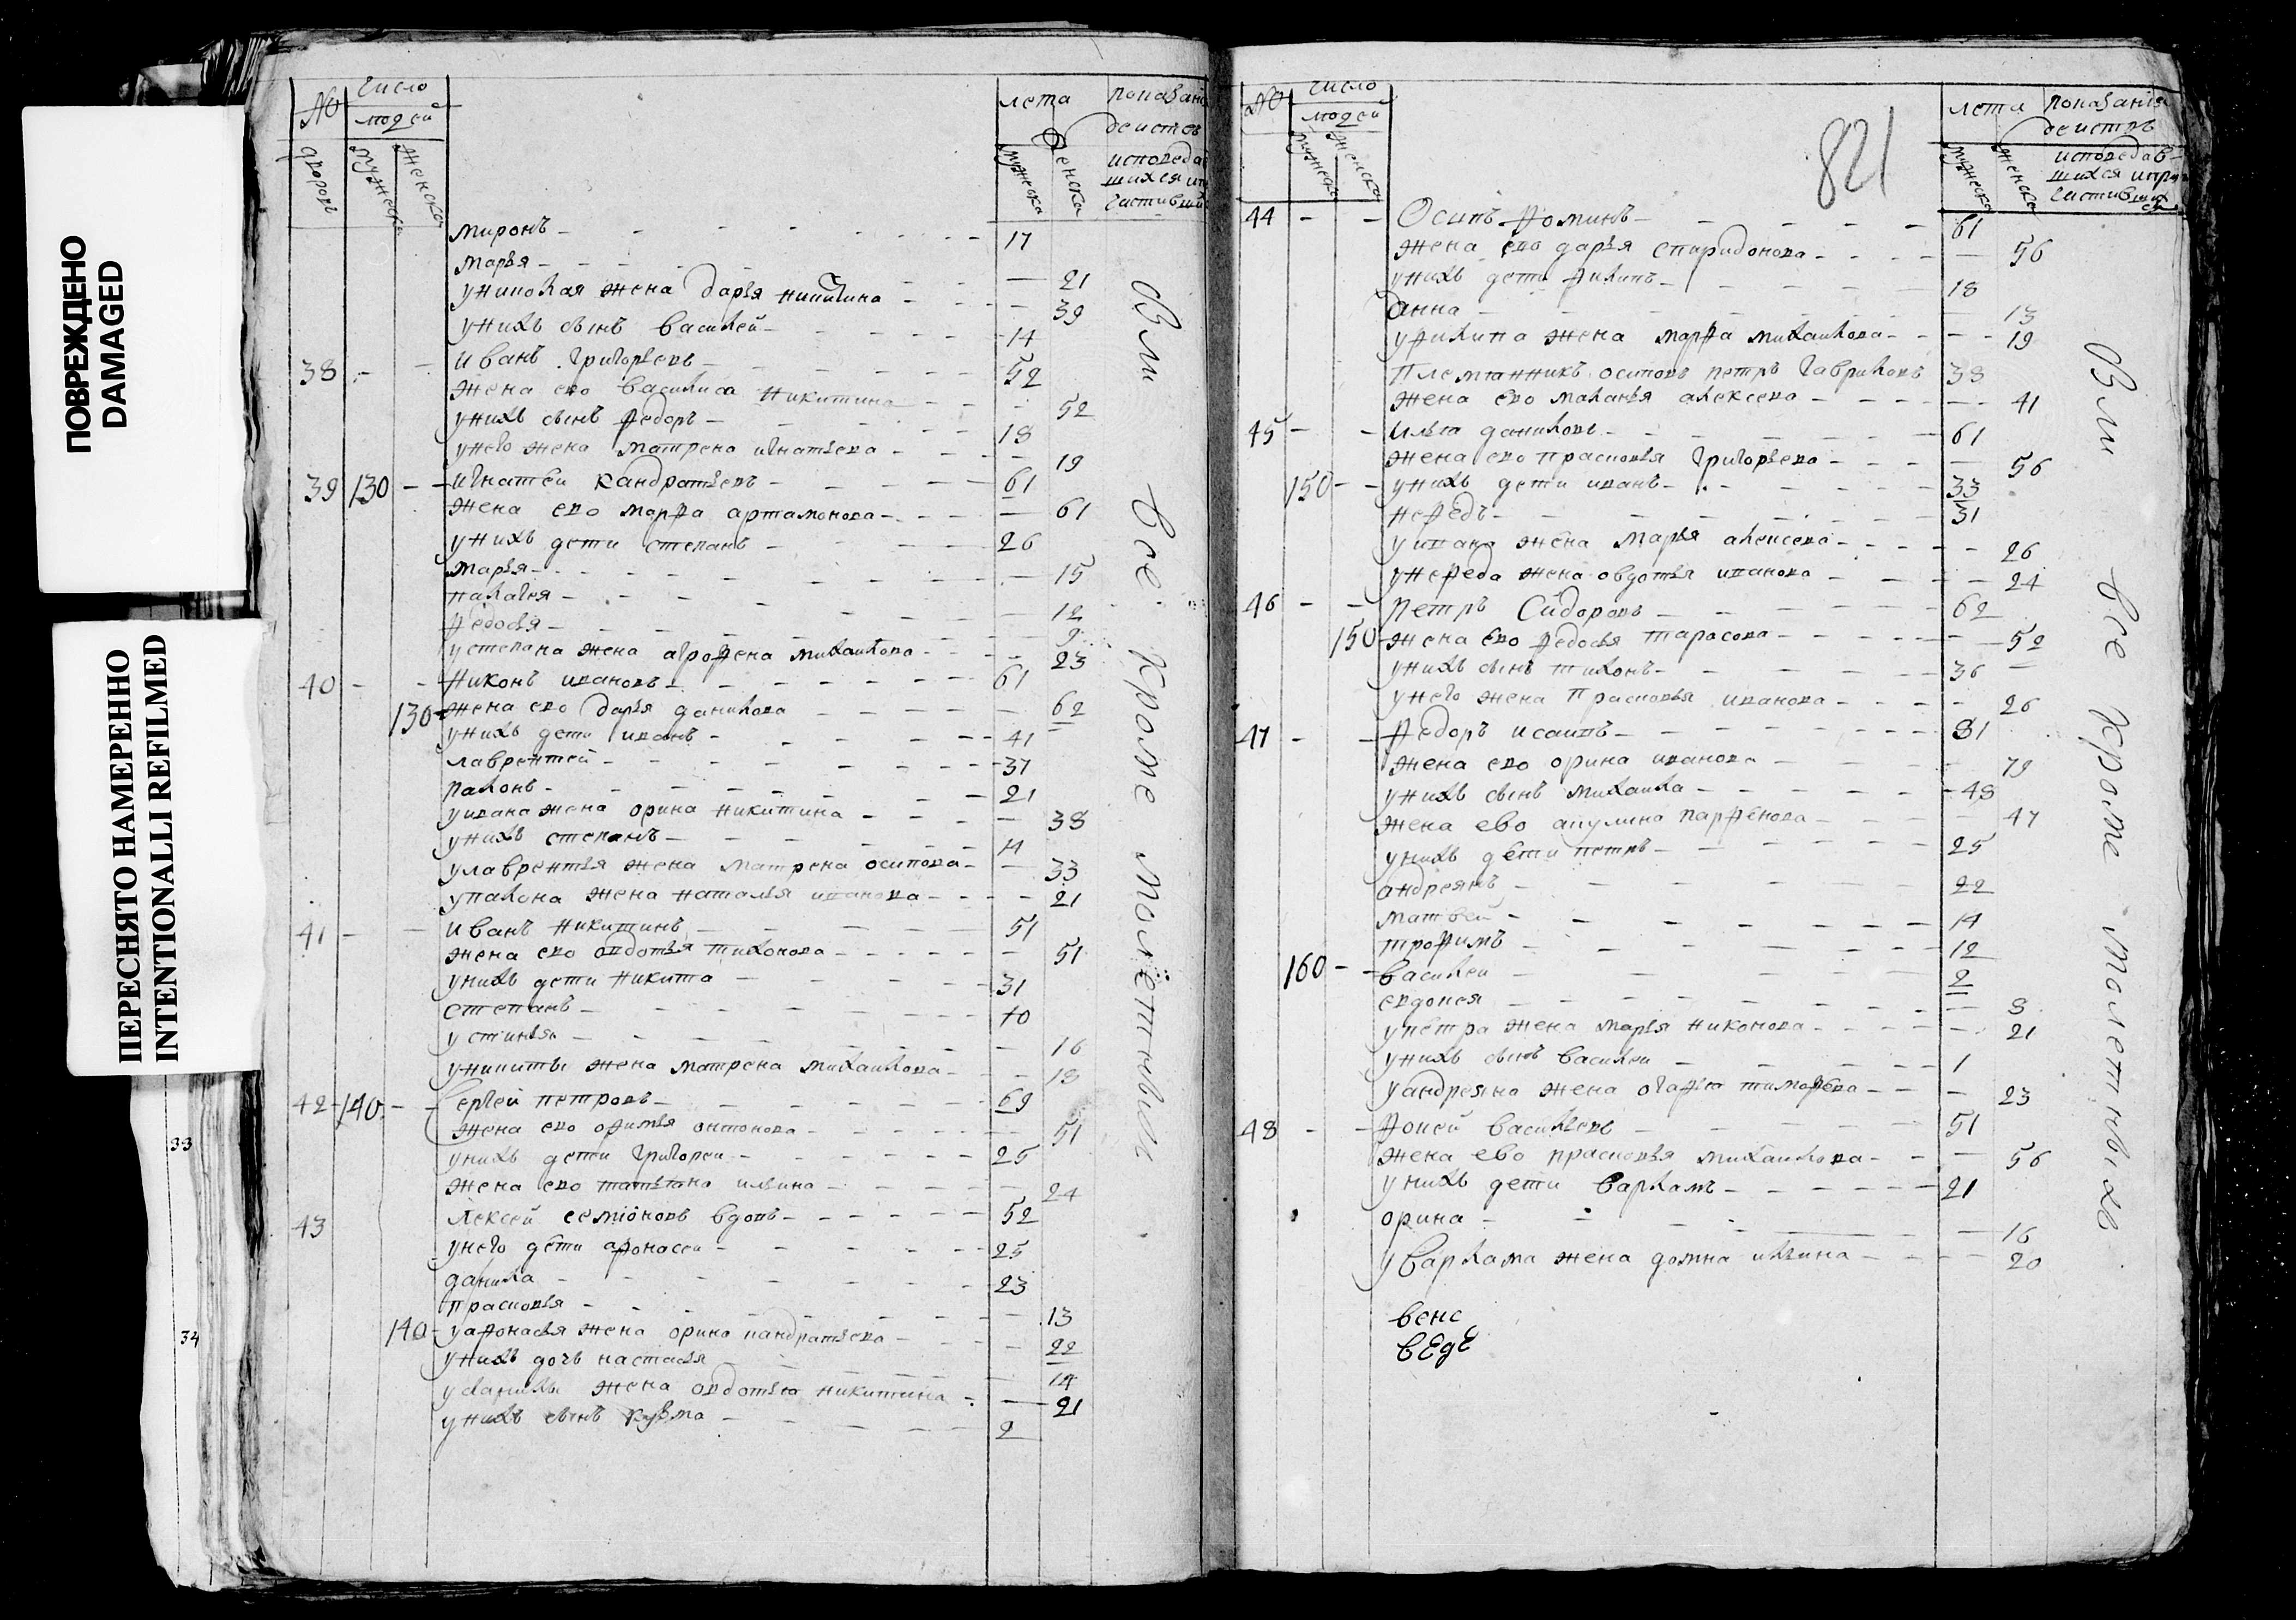 ПОВРЕЖДЕНО
DAMAGED
ПЕРЕСНЯТО НАМЕРЕННО
INTENTIONALLI REFILMED
33
34
№ число лета показани
людей действ
дворовъ мужеска женска мужеска женска исповеда
шихся и
чистивши
миронъ 17
марья 21
у николая жена дарья никитина 39
у нихъ сынъ василей 14
38 иванъ григорьевъ 52
жена ево василиса никитина 52
у нихъ сынъ федоръ 18
у него жена матрена игнатьева 19
39 130 игнатей кандратьевъ 61
жена ево марфа артамонова 61
у нихъ дети степанъ 26
марья 15
палагея 12
федосья 9
у степана жена аграфена михаилова 23
40 никонъ ивановъ 61
130 жена ево дарья данилова 62
у нихъ дети иванъ 41
лаврентей 37
палонъ 21
у ивана жена орина никитина 38
у нихъ степанъ 14
у лаврентья жена матрена осипова 33
у палона жена наталья иванова 21
41 иванъ никитинъ 51
жена ево овдотья тихонова 51
у нихъ дети никита 31
степанъ 10
устинья 16
у никиты жена матрена михаилова 18
42 140 Сергей петровъ 69
жена ево офимья онтонова 51
у нихъ дети григореи 25
жена ево татьяна ильина 24
43 Алексей семіоновъ вдовъ 52
у него дети афонасеи 25
данила 23
прасковья 13
140 у афонасья жена орина кандратьева 22
у нихъ дочь настасья 14
у данилы жена овдотья никитина 21
у нихъ сынъ кузма 2
Или все кроме малетныхъ
821
№ число лета показания
людей действъ
мужеска женска мужеска женска исповедав
шихся и при
чистивших
ся
44 Осипъ фоминъ 61
жена ево дарья спиридонова 56
у нихъ дети филипъ 18
Анна 13
у филипа жена марфа михаилова 19
племянникъ осиповъ петръ гавриловъ 38
жена ево маланья алексева 41
45 илья даниловъ 61
жена ево прасковья григорьева 56
150 у нихъ дети иванъ 33
нефедъ 31
у ивана жена марья алексева 26
у нефеда жена овдотья иванова 24
46 петръ Сидоровъ 62
150 жена ево федосья тарасова 52
у нихъ сынъ тихонъ 36
у него жена прасковья иванова 26
47 федоръ исаипъ 81
жена ево орина иванова 79
у нихъ сынъ михаила 48
жена ево акулина парфенова 47
у нихъ дети петръ 25
андреянъ 22
матвей 14
трофимъ 12
160 василеи 2
евдокея 8
у петра жена марья никонова 21
у нихъ сынъ василеи 1
у андреяна жена огафья тимофева 23
48 фокей васильевъ 51
жена ево прасковья михаилова 56
у нихъ дети варламъ 21
орина 16
у варлама жена домна ильина 20
венс
вEдE
Или все кроме малетныхъ